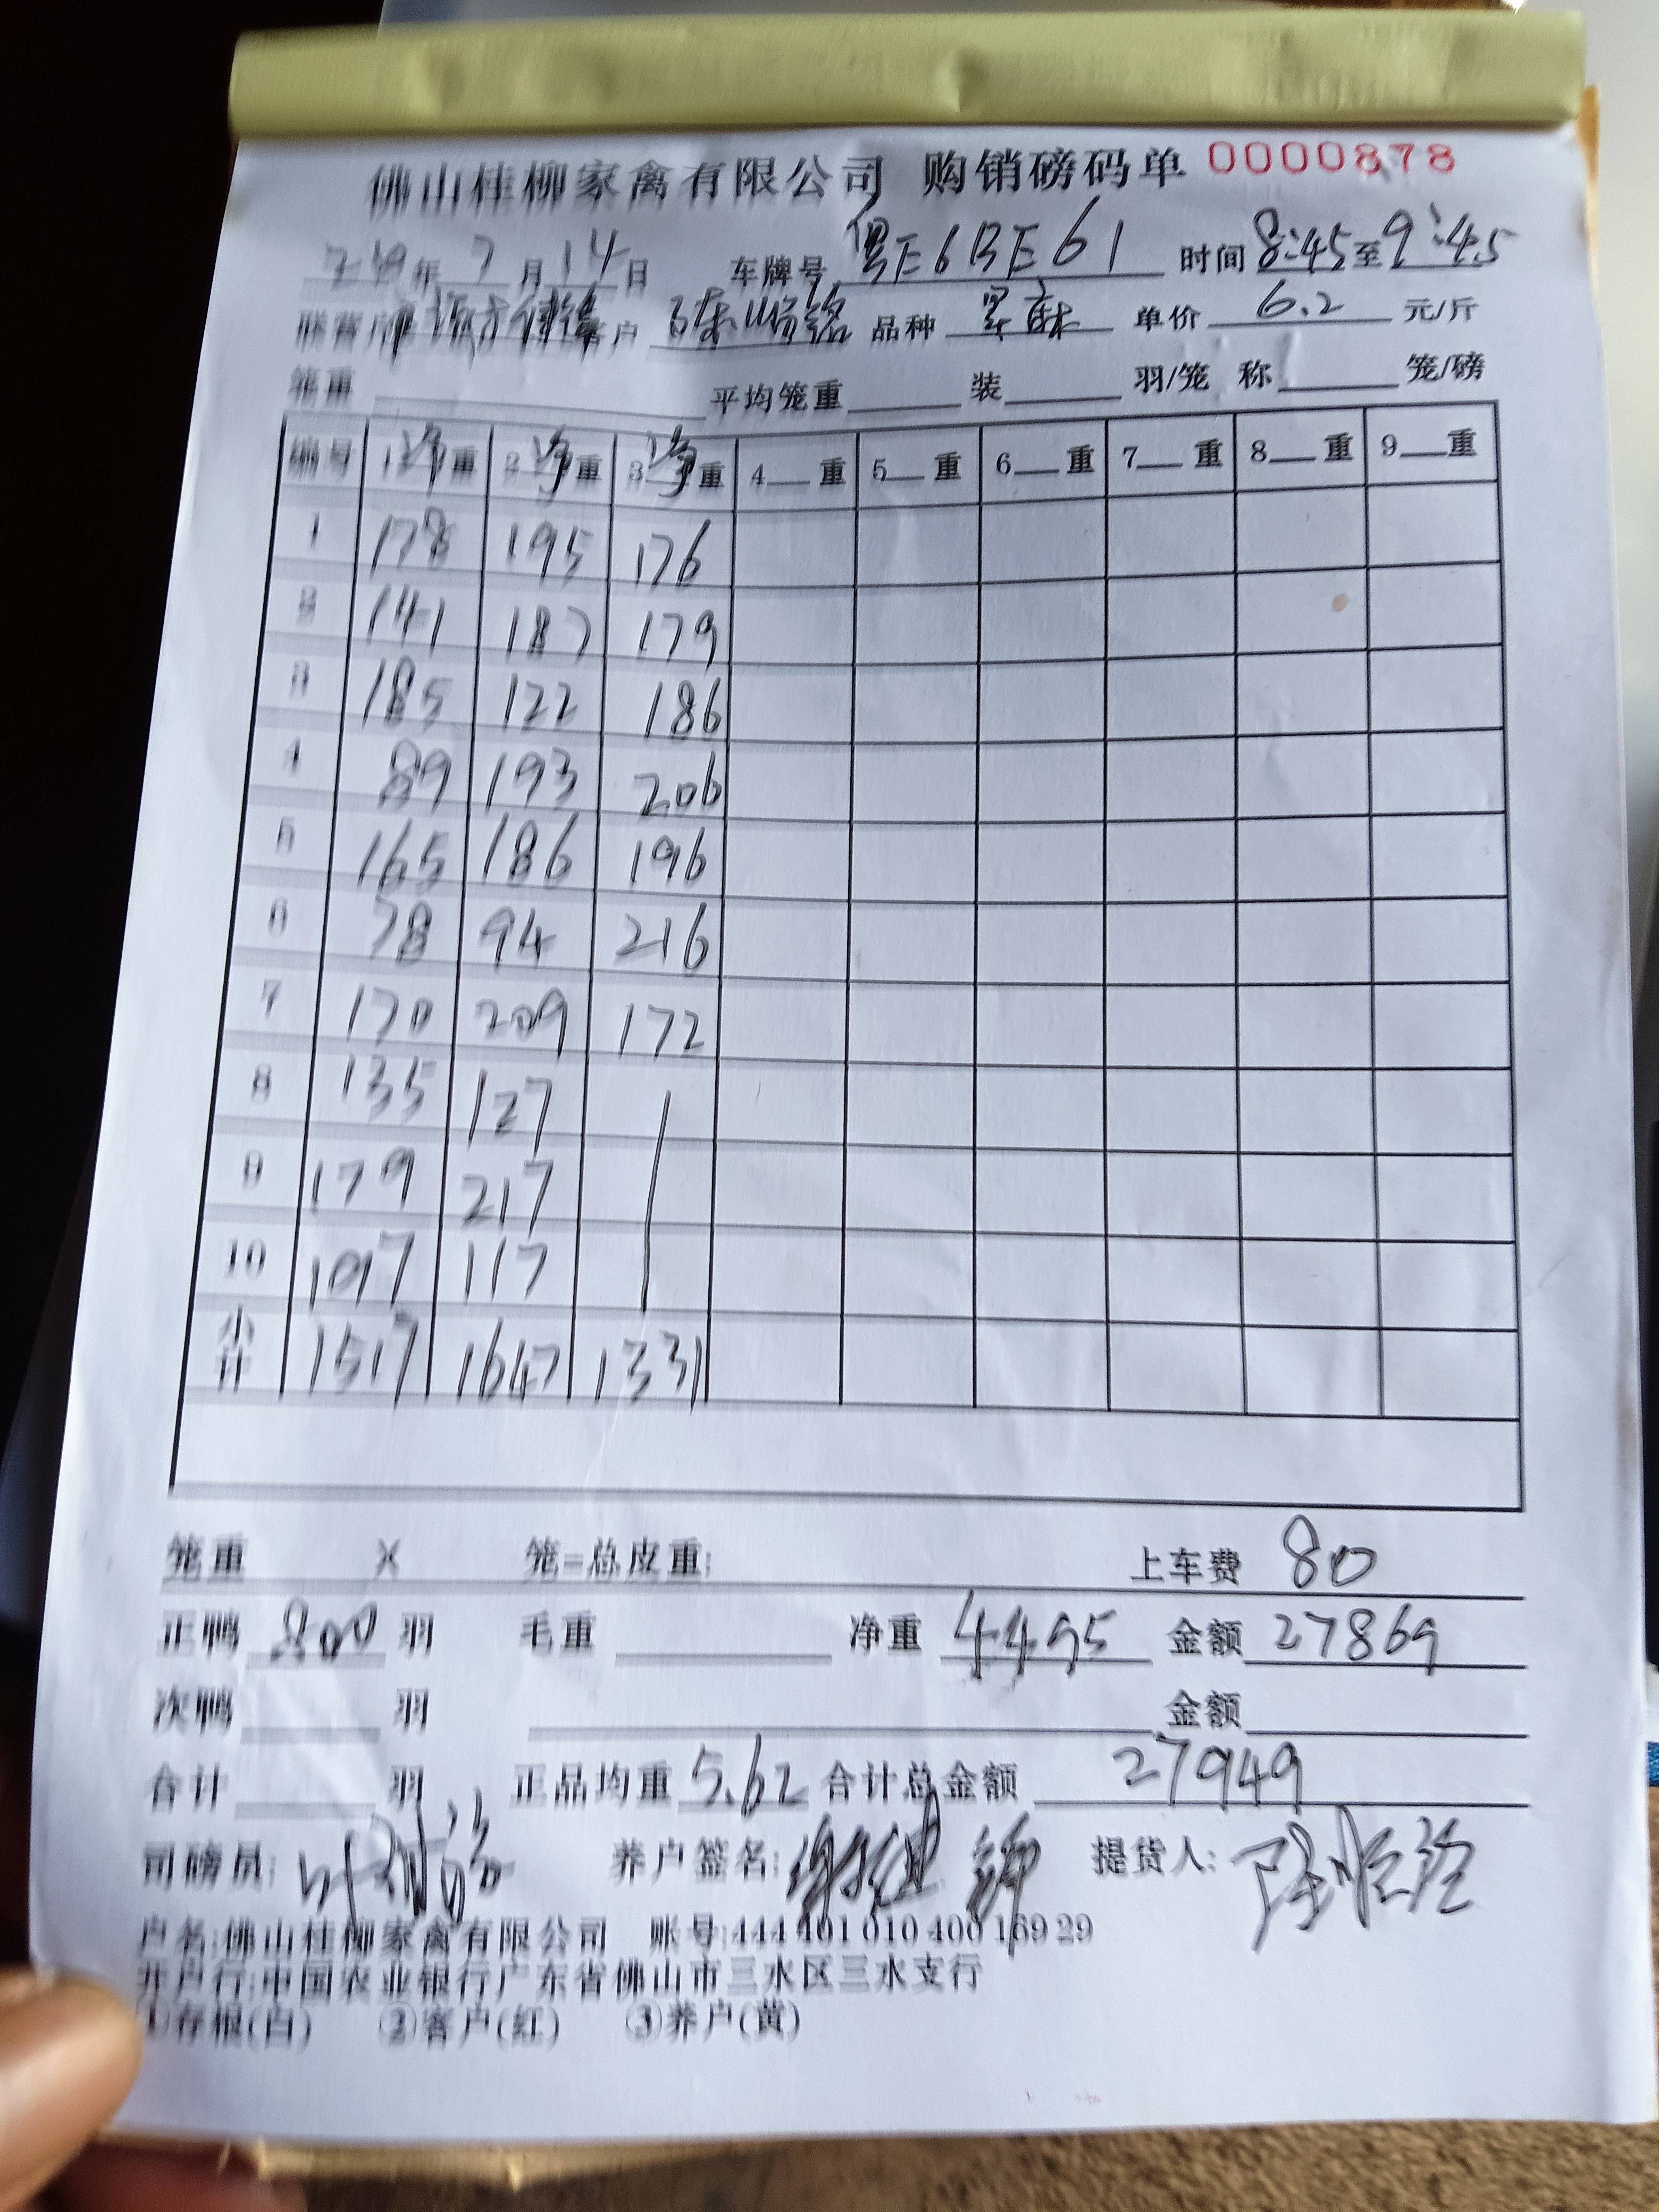 佛山桂柳家禽有限公司 购销磅码单 0000878
年 7 月 14 日 车牌号 粤E6BE61 时间 8:45 至 9:45
客户 品种 单价 6.2 元/斤
笼重 平均笼重 装 羽/笼 称 笼/磅
编号 1净重 2净重 3净重 4 重 5 重 6 重 7 重 8 重 9 重
1 178 195 176
2 141 187 179
3 185 122 186
4 89 193 206
5 165 186 196
6 78 94 216
7 170 209 172
8 135 127
9 179 217
10 197 117
小计 1517 1647 1331
笼重 X 笼=总皮重: 上车费 80
正鸭 800 羽 毛重 净重 4495 金额 27869
次鸭 羽 金额
合计 羽 正品均重 5.62 合计总金额 27949
司磅员: 养户签名: 提货人:
户名:佛山桂柳家禽有限公司 账号:444 401 010 400 169 29
开户行:中国农业银行广东省佛山市三水区三水支行
①存根(白) ②客户(红) ③养户(黄)